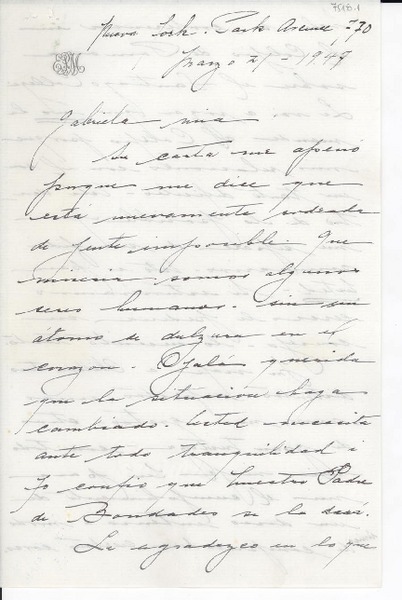 Nueva York. Park Avenue 770
marzo 21 - 1949
Gabriela mia
Su carta me apenó
porque me dice que
está nuevamente rodeada
de jente imposible. Que
miseria somos algunos
seres humanos. sin un
átomo de dulzura en el
corazon. Ojalá querida
que la situación haya
cambiado. Usted necesita
ante todo tranquilidad i
yo confio que nuestro Padre
de Bondades se la dará.
Le agradezco en lo que